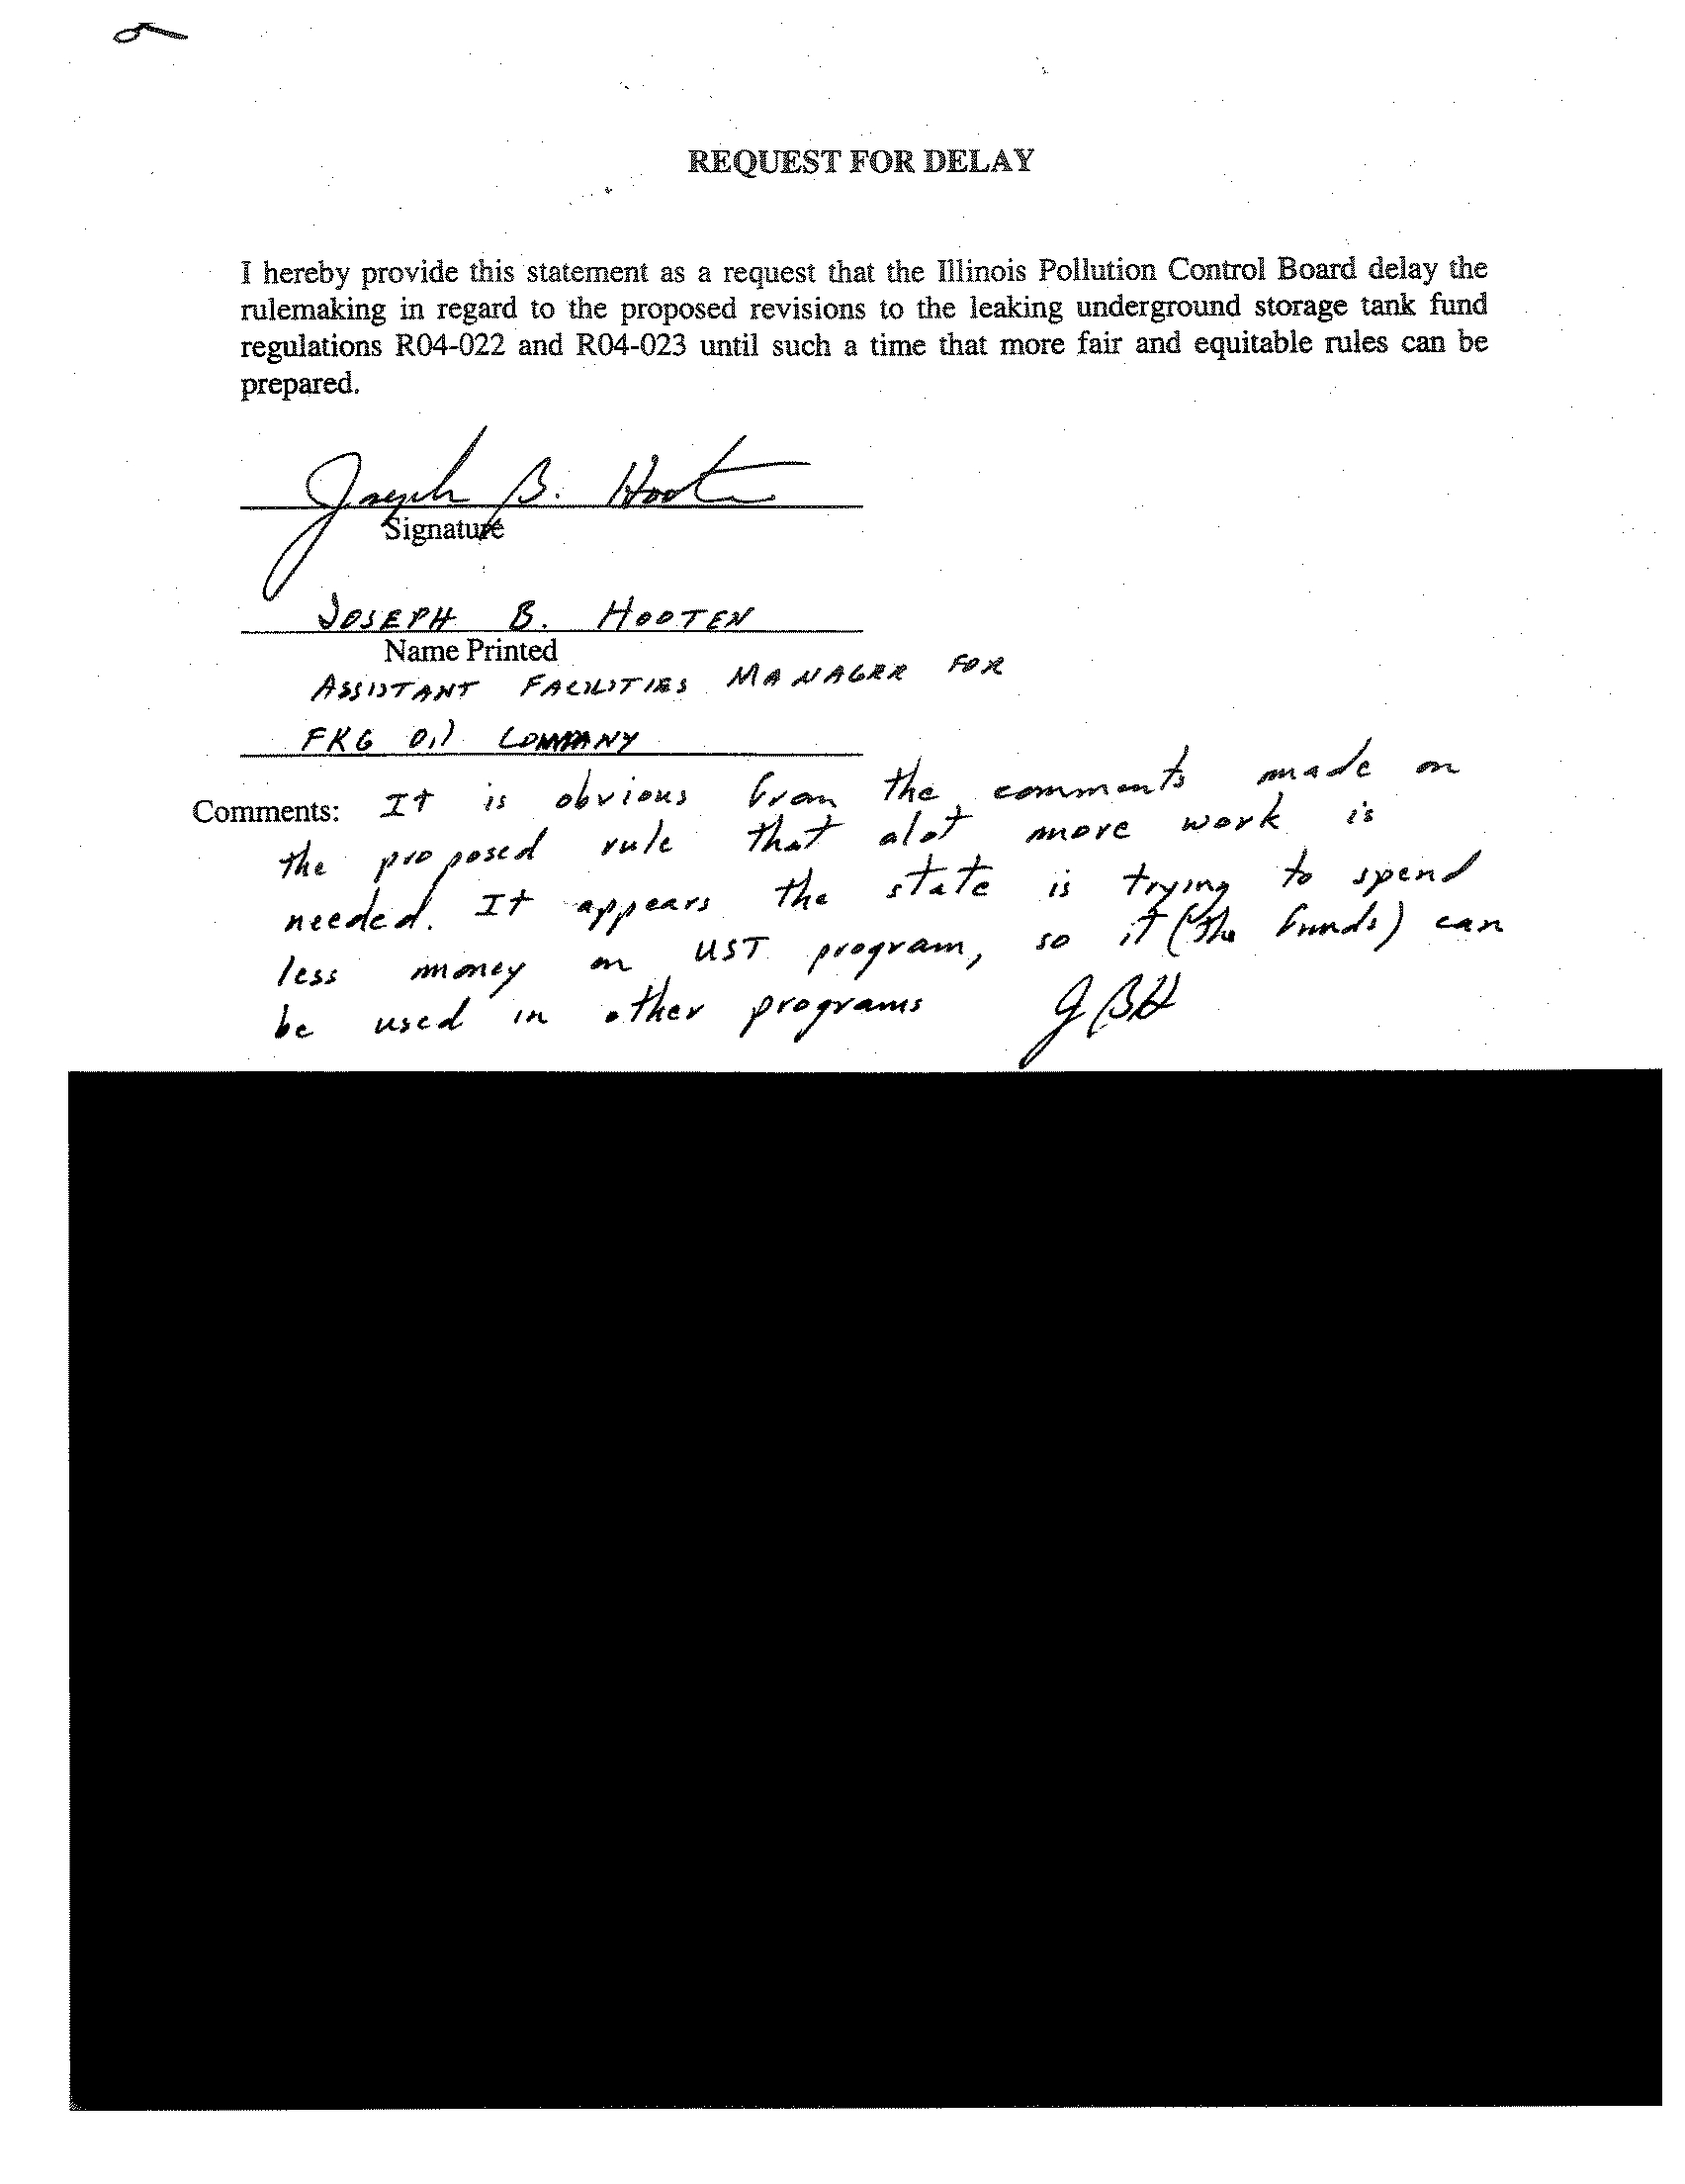 REQUEST FOR DELAY
I hereby provide this statement as a request that the Illinois Pollution Control Board delay the
rulemaking in regard to the proposed revisions to the leaking underground storage tank fund
regulations R04-022 and R04-023 until such a time that more fair and equitable rules can be
prepared.
Joseph B. Hooten
Signature
JOSEPH B. HOOTEN
Name Printed
ASSISTANT FACILITIES MANAGER FOR
FKG Oil COMPANY
Comments: It is obvious from the comments made on
the proposed rule that alot more work is
needed. It appears the state is trying to spend
less money on UST program, so it (the funds) can
be used in other programs JBH